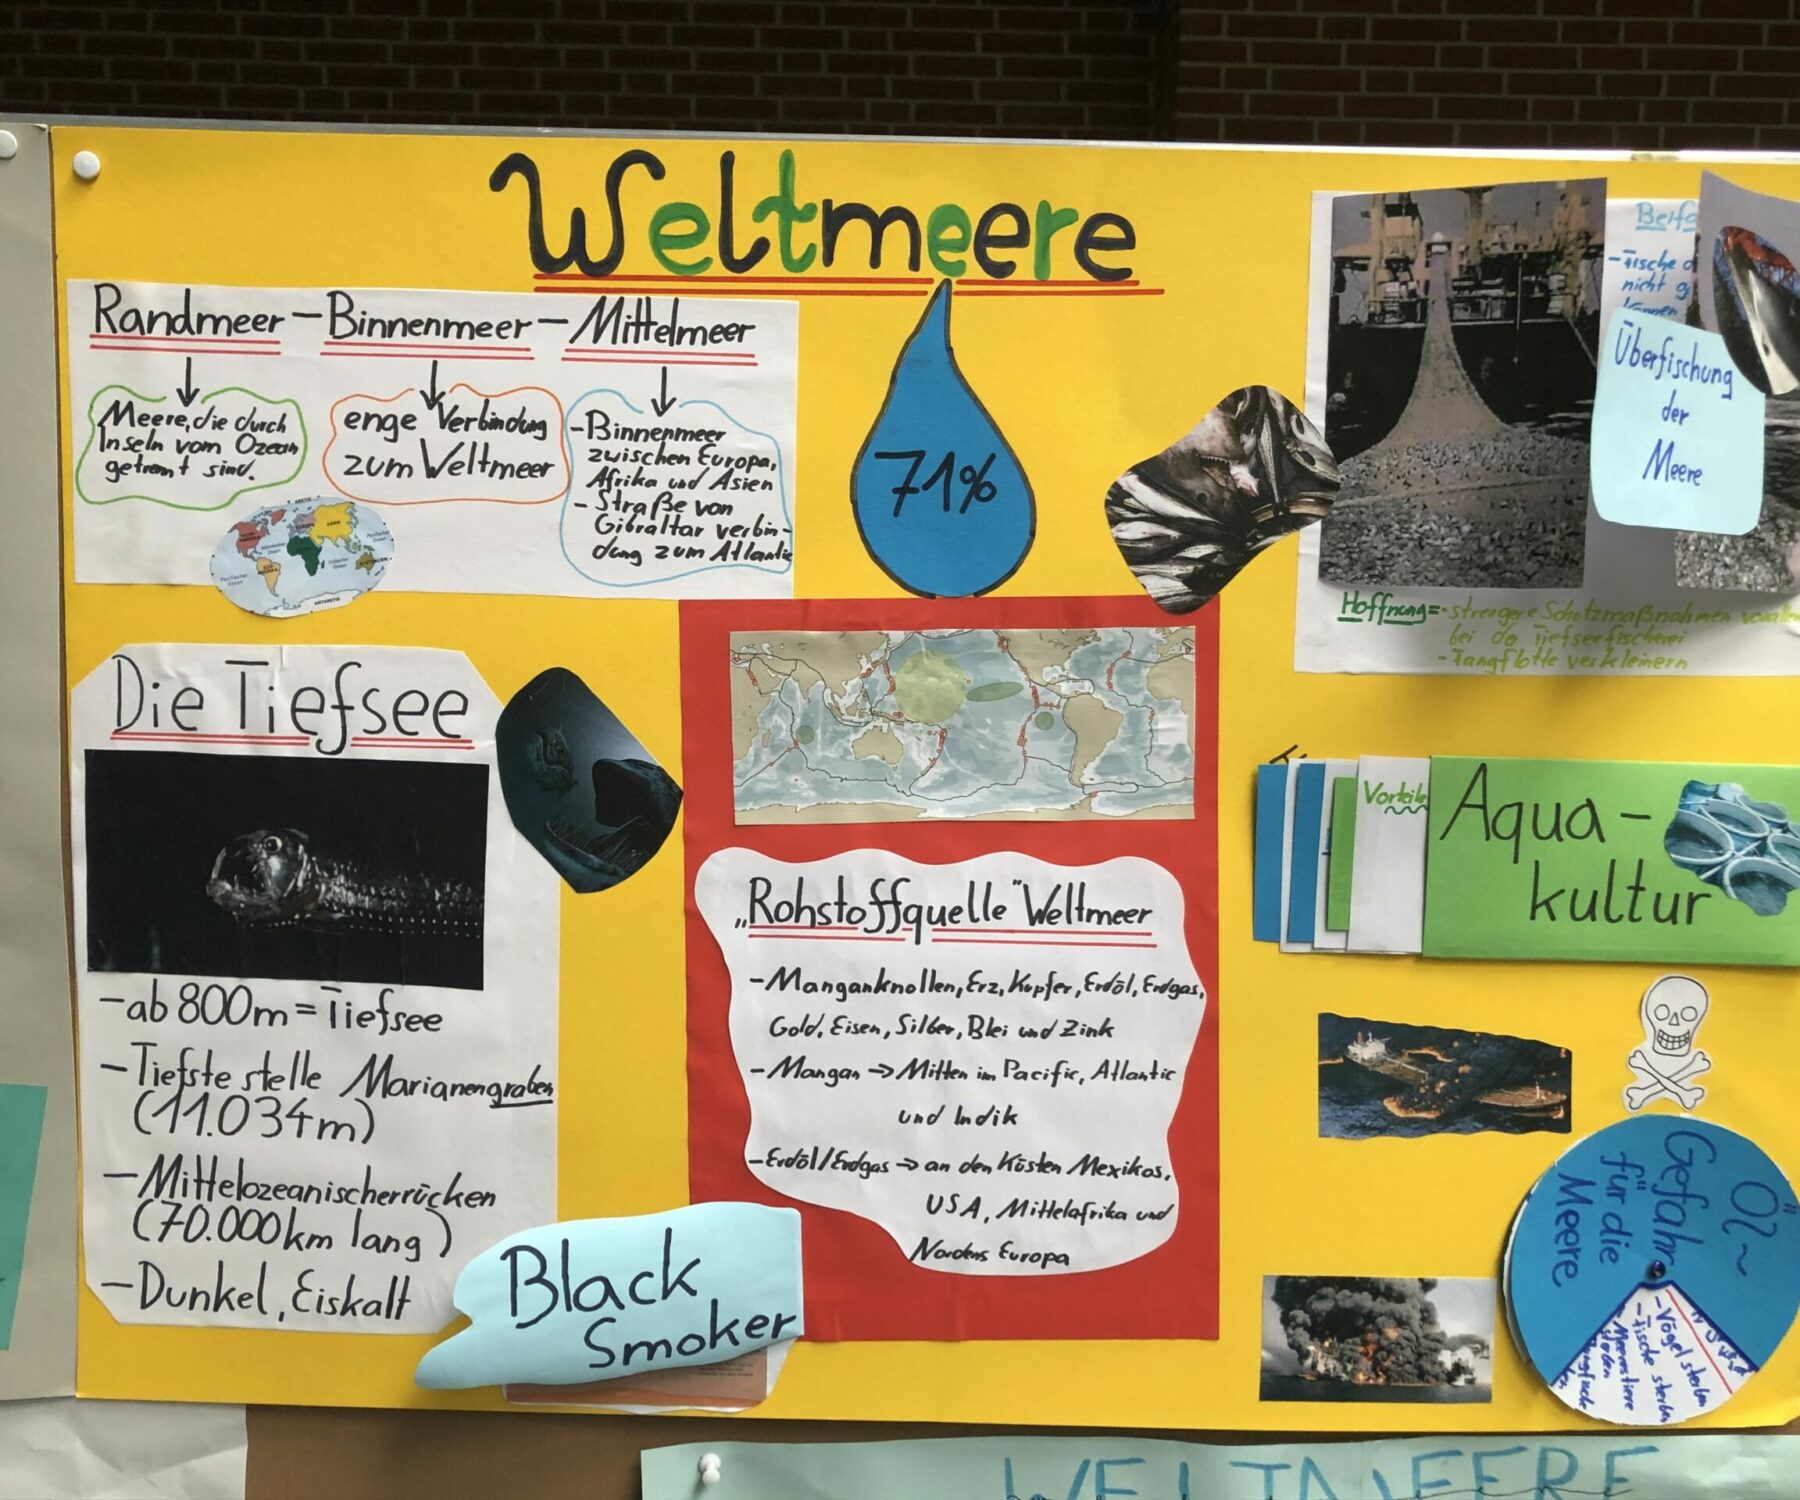 Weltmeere
Randmeer - Binnenmeer - Mittelmeer
Meere, die durch
Inseln vom Ozean
getrennt sind.
enge Verbindung
zum Weltmeer
- Binnenmeer
zwischen Europa,
Afrika und Asien
- Straße von
Gibraltar verbin-
dung zum Atlantic
71%
Überfischung
der
Meere
- Fische
nicht
können
Hoffnung = - strengere Schutzmaßnahmen
bei de Tiefseefischerei
- Fangflotte verkleinern
Die Tiefsee
- ab 800m = Tiefsee
- Tiefste stelle Marianengraben
(11.034m)
- Mittelozeanischerrücken
(70.000km lang)
- Dunkel, Eiskalt
Black
Smoker
„Rohstoffquelle" Weltmeer
- Manganknollen, Erz, Kupfer, Erdöl, Erdgas,
Gold, Eisen, Silber, Blei und Zink
- Mangan → Mitten im Pacific, Atlantic
und Indik
- Erdöl/Erdgas → an den Küsten Mexikos,
USA, Mittelafrika und
Nordens Europa
Vorteile
Aqua-
kultur
Öl~
Gefahr
für die
Meere
- Vögel sterben
- Fische sterben
- Meerestiere
sterben
WELTMEERE